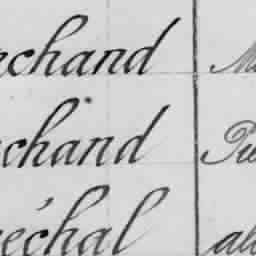 rchand M
chand Pi
réchal al